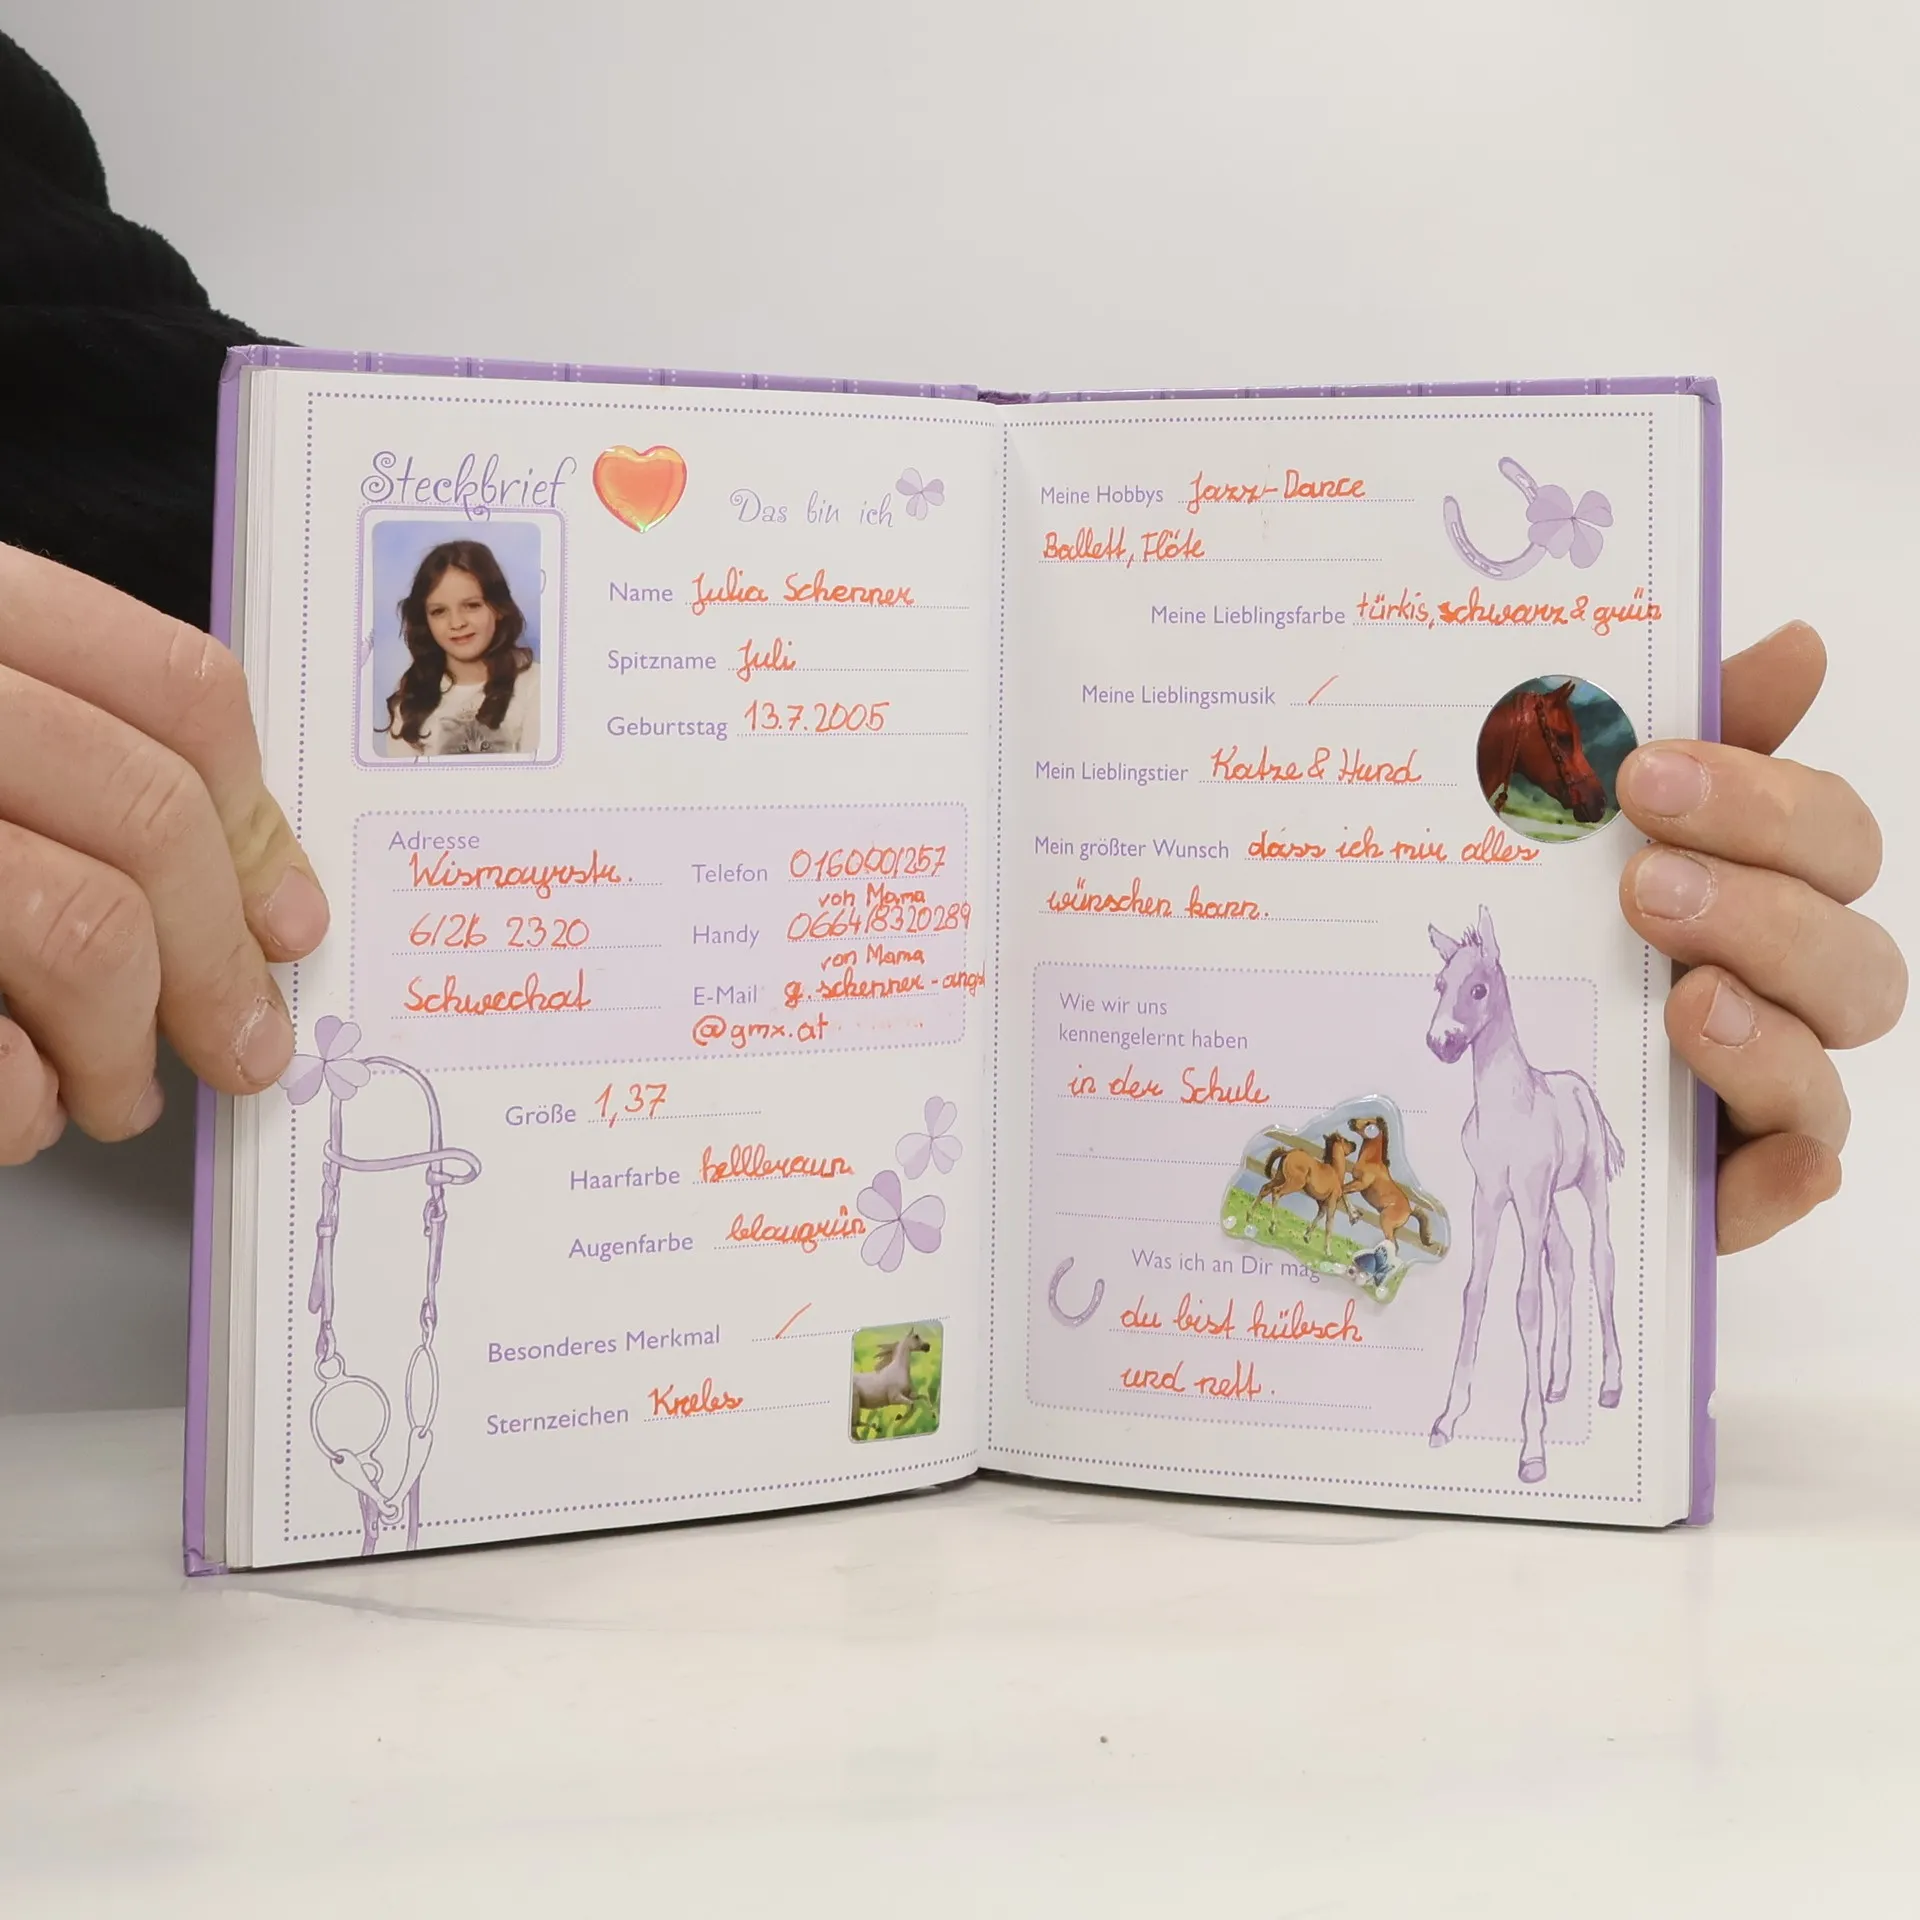 Steckbrief
Das bin ich
Name Julia Schenner
Spitzname Juli
Geburtstag 13.7.2005
Adresse
Wismayrstr.
2320
Schwechat
Telefon
von Mama
Handy 0664/8320289
von Mama
E-Mail g. schenner-
@gmx.at
Größe 1,37
Haarfarbe hellbraun
Augenfarbe blaugrün
Besonderes Merkmal /
Sternzeichen Krebs
Meine Hobbys Jazz-Dance
Ballett, Flöte
Meine Lieblingsfarbe türkis, schwarz & grün
Meine Lieblingsmusik /
Mein Lieblingstier Katze & Hund
Mein größter Wunsch dass ich mir alles
wünschen kann.
Wie wir uns
kennengelernt haben
in der Schule
Was ich an Dir mag
du bist hübsch
und nett.